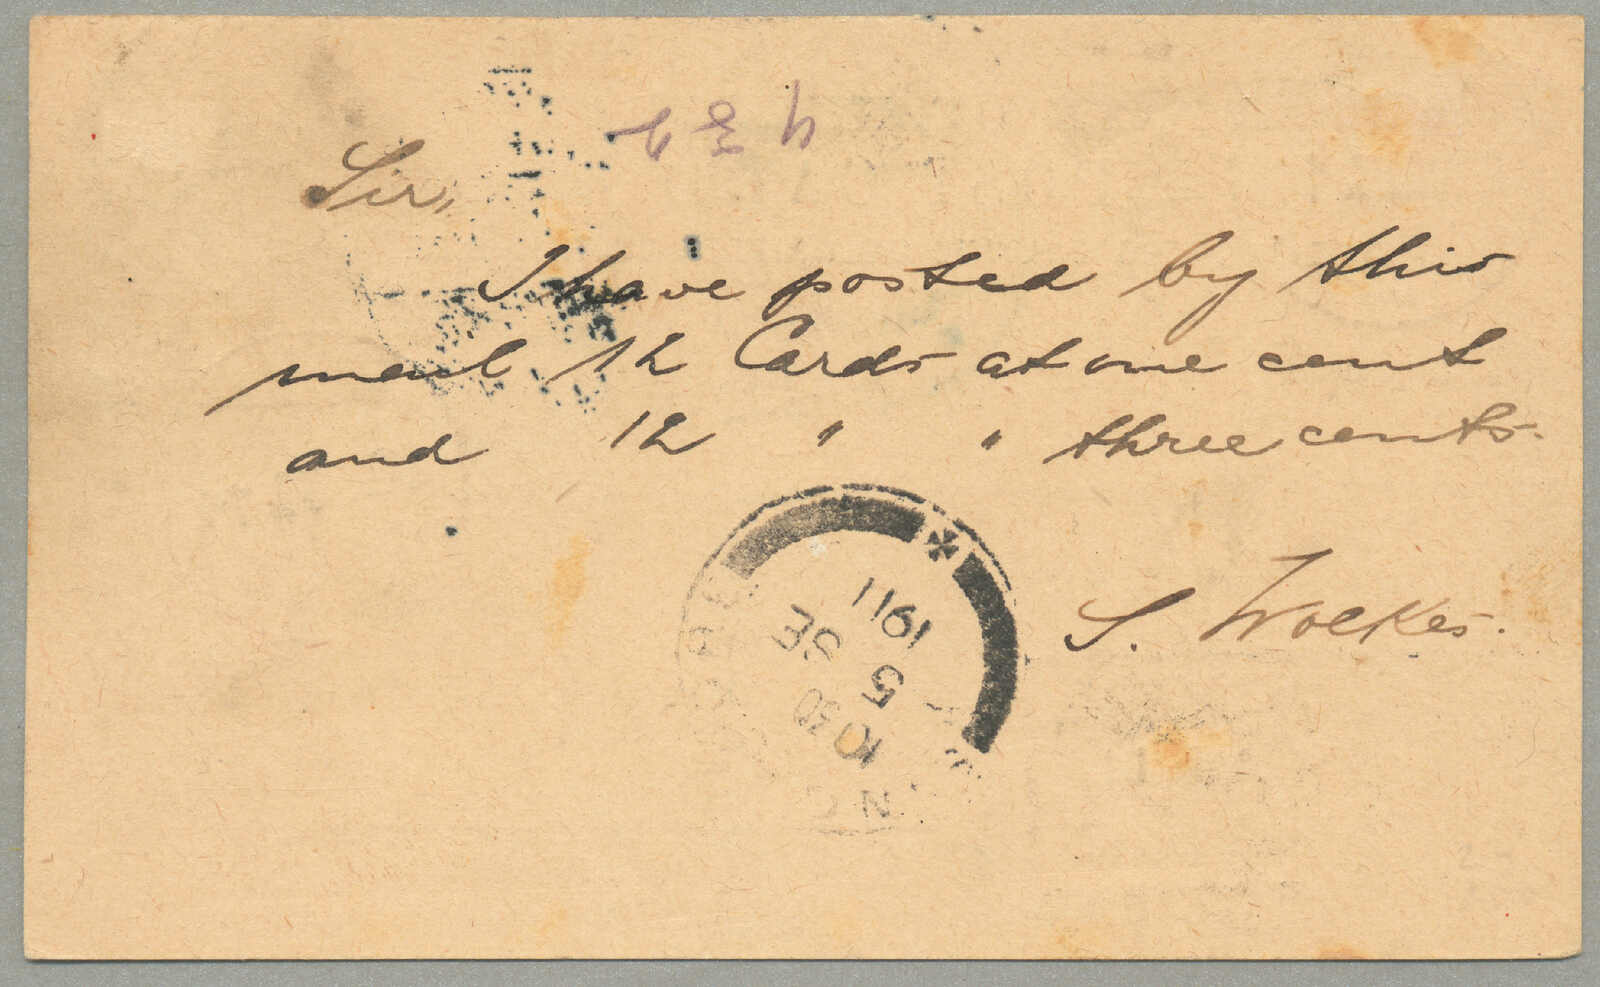 Sir,
I have posted by this
mail 12 Cards at one cent
and 12 " " three cents.
S. Wolkes.
1911
5 SE
10 30